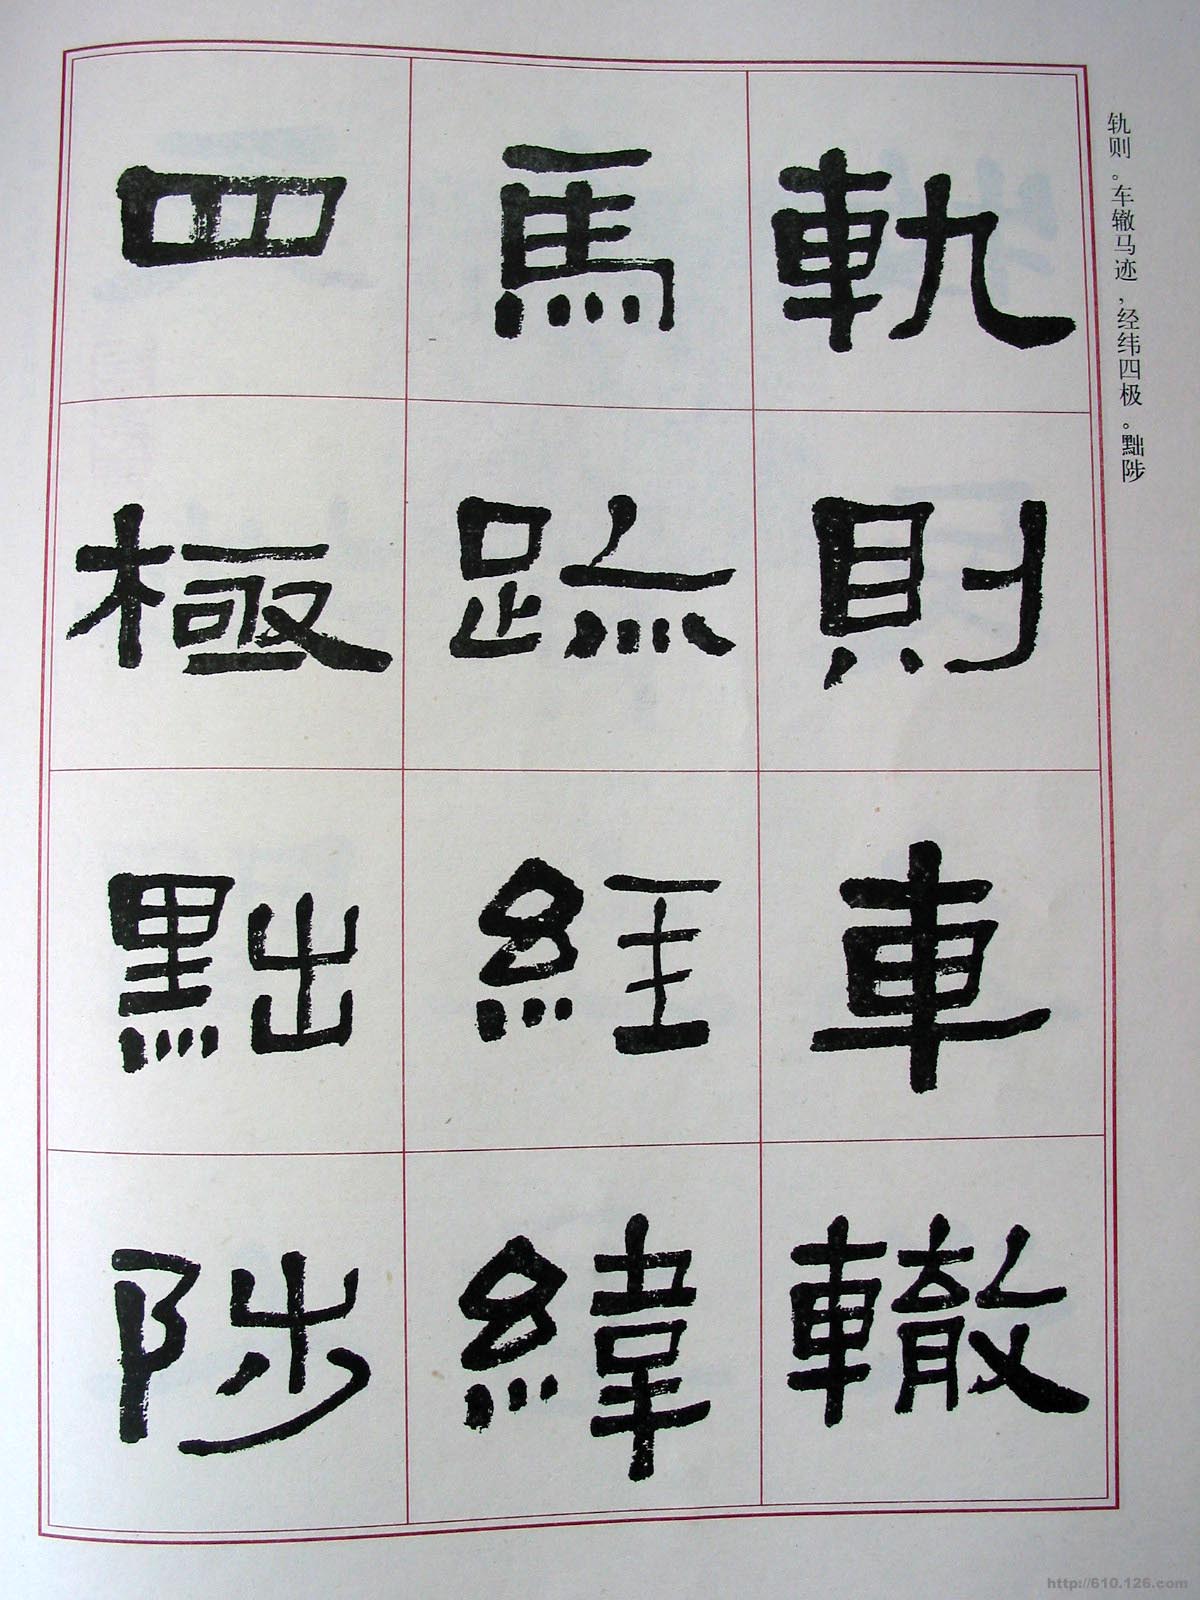 轨则。车辙马迹，经纬四极。黜陟
軌則車轍
馬跡經緯
四極黜陟
http://610.126.com